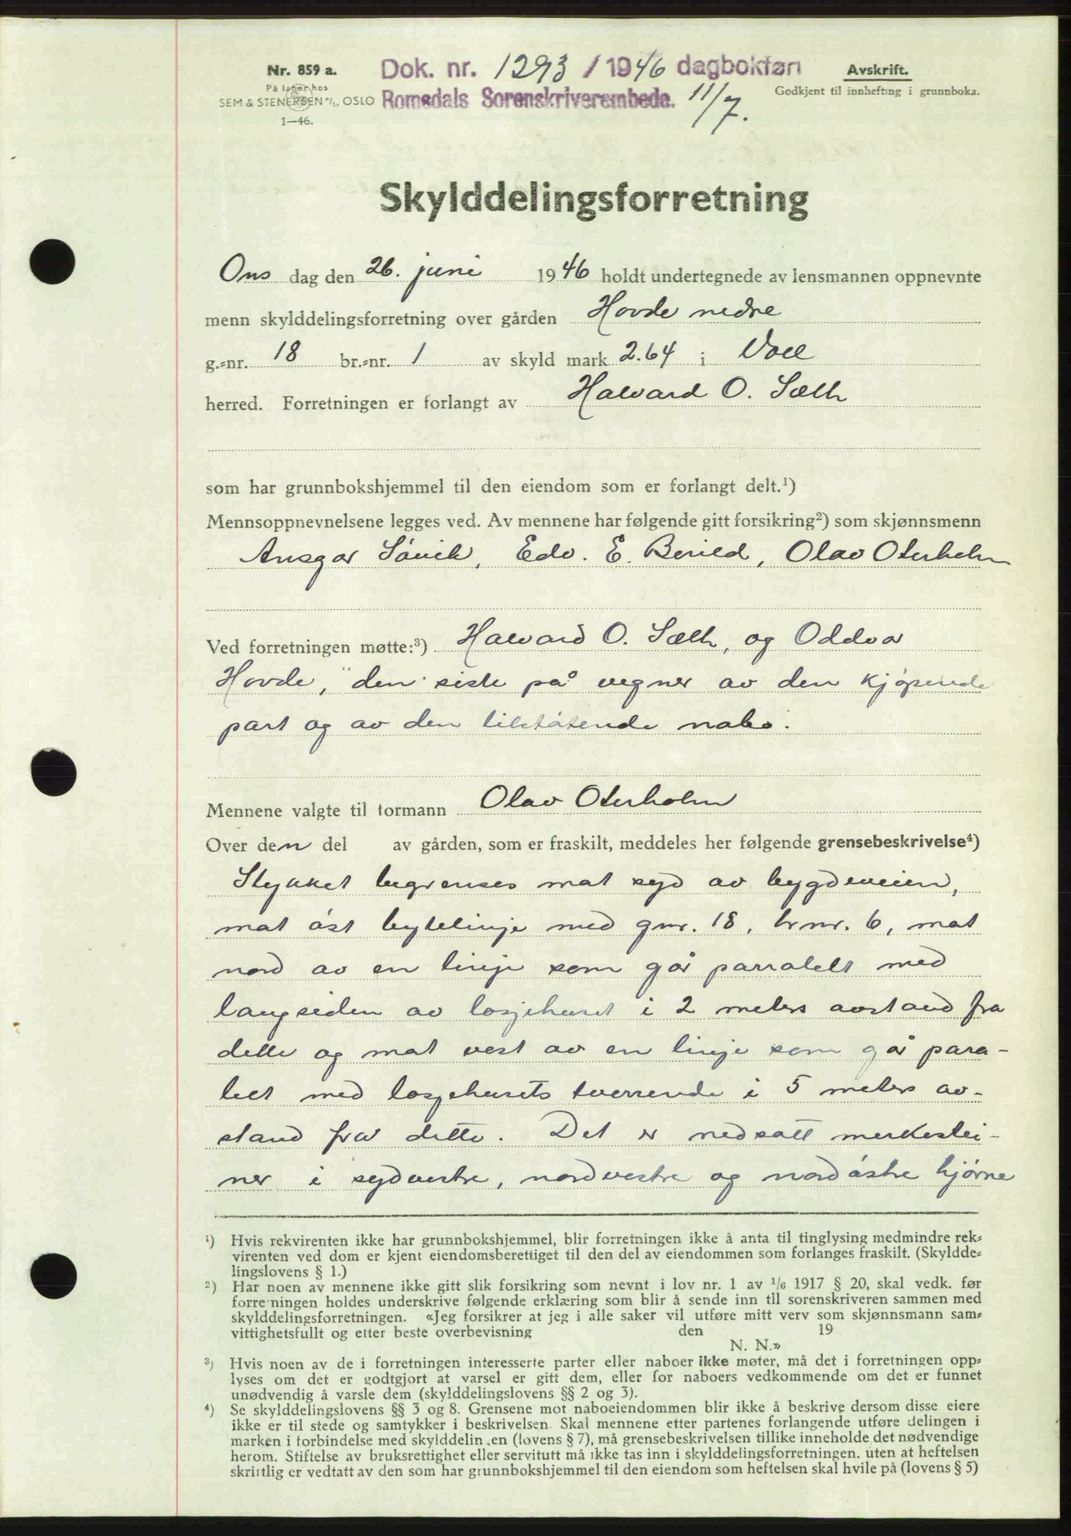 Nr. 859 a.
På lager hos
SEM & STENERSEN A/S, OSLO
1—46.
Dok. nr. 1293 / 1946 dagbokført
Romsdals Sorenskriverembede. 11/7.
Avskrift.
Godkjent til innhefting i grunnboka.
Skylddelingsforretning
Ons dag den 26. juni 1946 holdt undertegnede av lensmannen oppnevnte
menn skylddelingsforretning over gården Hovde nedre
g.-nr. 18 br.-nr. 1 av skyld mark 2.64 i Voll
herred. Forretningen er forlangt av Halvard O. Sæth
som har grunnbokshjemmel til den eiendom som er forlangt delt.¹)
Mennsoppnevnelsene legges ved. Av mennene har følgende gitt forsikring²) som skjønnsmenn
Ansgar Søvik, Edv. E. Berild, Olav Oterholm
Ved forretningen møtte:³) Halvard O. Sæth, og Oddvar
Hovde, den siste på vegner av den kjøpende
part og av den tilstøtende nabo.
Mennene valgte til formann Olav Oterholm
Over den del av gården, som er fraskilt, meddeles her følgende grensebeskrivelse⁴)
Stykket begrenses mot syd av bygdeveien,
mot øst bytelinje med gnr. 18, brnr. 6, mot
nord av en linje som går parralelt med
langsiden av losjehuset i 2 meters avstand fra
dette og mot vest av en linje som går para-
lelt med losjehusets tverrende i 5 meters av-
stand fra dette. Det er nedsatt merkestei-
ner i sydvestre, nordvestre og nordøstre hjørne
¹) Hvis rekvirenten ikke har grunnbokshjemmel, blir forretningen ikke å anta til tinglysing medmindre rek-
virenten ved dom er kjent eiendomsberettiget til den del av eiendommen som forlanges fraskilt. (Skyldde-
lingslovens § 1.)
²) Har noen av mennene ikke gitt slik forsikring som nevnt i lov nr. 1 av 1/6 1917 § 20, skal vedk. før
forretningen holdes underskrive følgende erklæring som blir å sende inn til sorenskriveren sammen med
skylddelingsforretningen. «Jeg forsikrer at jeg i alle saker vil utføre mitt verv som skjønnsmann sam-
vittighetsfullt og etter beste overbevisning den 19
N. N.»
³) Hvis noen av de i forretningen interesserte parter eller naboer ikke møter, må det i forretningen opp-
lyses om det er godtgjort at varsel er gitt dem, eller for naboers vedkommende om det er funnet
unødvendig å varsle dem (skylddelingslovens §§ 2 og 3).
⁴) Se skylddelingslovens §§ 3 og 8. Grensene mot naboeiendommen blir ikke å beskrive dersom disse eiere
ikke er til stede og samtykker i beskrivelsen. Skal mennene etter partenes forlangende utføre delingen i
marken i forbindelse med skylddelingen (lovens § 7), må grensebeskrivelsen tillike inneholde det nødvendige
herom. Stiftelse av bruksrettighet eller servitutt må ikke tas inn i skylddelingsforretningen, uten at heftelsen
skriftlig er vedtatt av den som har grunnbokshjemmel til den eiendom som heftelsen skal hvile på (lovens § 5)